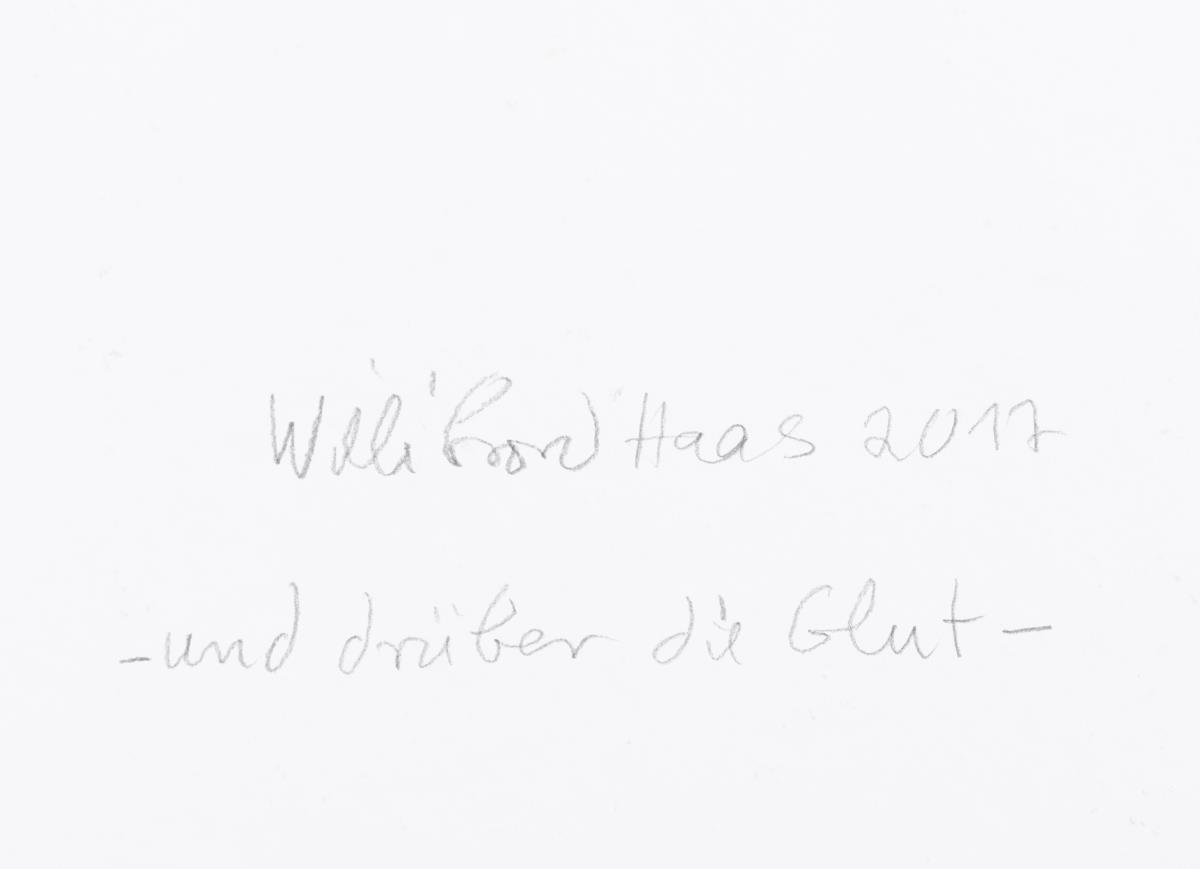 Willibrord Haas 2017
- und drüber die Glut -